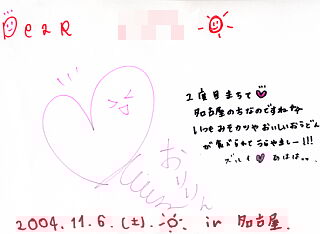 DeaR
2度目まして♥
名古屋の方なのですねな
いつもみそカツやおいしいおうどん
が食べられてうらやましー!!!
ズルイ♥ あはは。。
おりん
2004.11.6.(土). in 名古屋.